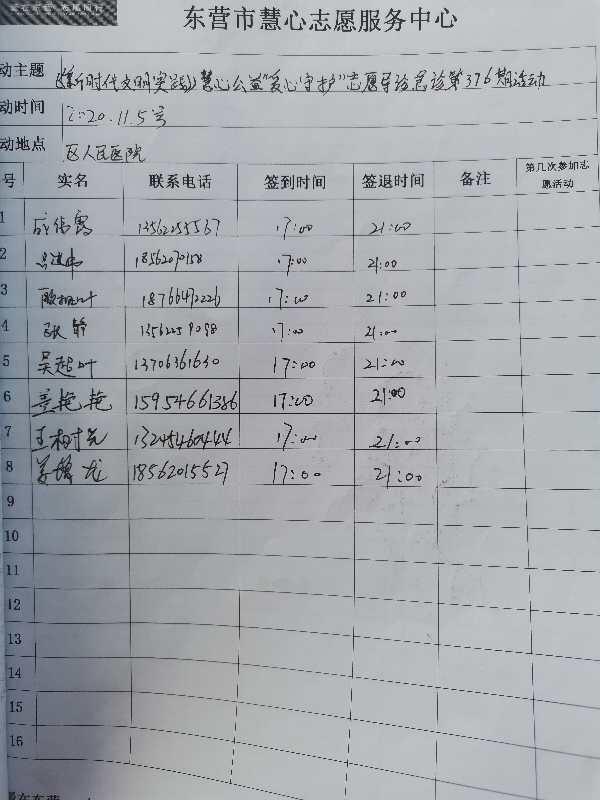 爱在东营 志愿同行
东营市慧心志愿服务中心
动主题 《新时代文明实践》慧心公益"爱心守护"志愿导诊急诊第376期活动
动时间 2020.11.5号
动地点 区人民医院
号 实名 联系电话 签到时间 签退时间 备注 第几次参加志愿活动
1 13562255567 17:00 21:00
2 18562070158 17:00 21:00
3 18766472226 17:00 21:00
4 13562259098 17:00 21:00
5 吴起叶 13706361630 17:00 21:00
6 艳艳 15954661386 17:00 21:00
7 王树先 13245460444 17:00 21:00
8 龙 18562015527 17:00 21:00
9
10
11
12
13
14
15
16